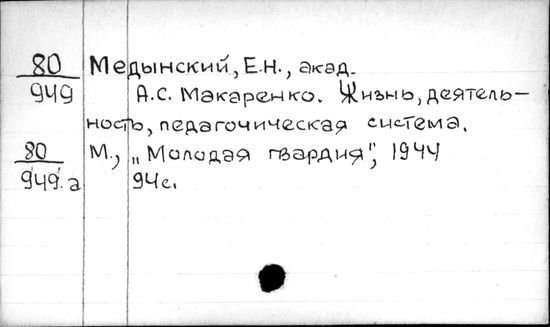 80 Медынский, Е.Н., акад.
949 А.С. Макаренко. Жизнь, деятель-
ность, педагогическая система.
80 М., „Молодая гвардия", 1944
949.а 94с.